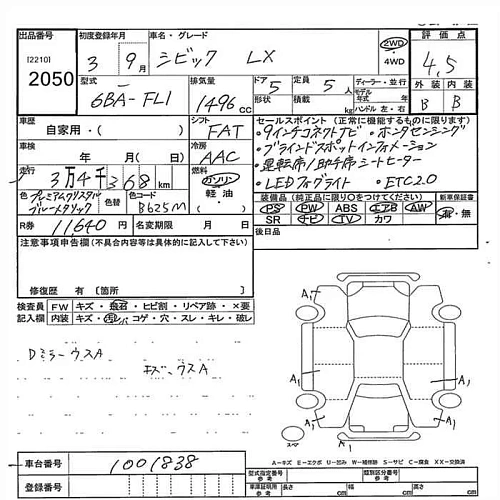 出品番号
[2210]
2050
初度登録年月
3 年 9月
車名・グレード
シビック LX
2WD
・4WD
評価点
4,5
型式
6BA-FL1
排気量
1496 CC
ドア 5
形状
定員 5 人
積載量 kg
ディーラー・並行
モデル年式 年
ハンドル 左・右
外装 内装
B B
車歴
自家用・( )
シフト
FAT
セールスポイント (正常に機能するものに限ります)
・9インチコネクトナビ ・ホンダセンシング
・ブラインドスポットインフォメーション
・運転席/助手席シートヒーター
・LEDフォグライト ・ETC2.0
車検
年 月 日
冷房
AAC
走行
3万4千368 km
燃料
ガソリン
軽油・
色 プレミアムクリスタル
ブルーメタリック
色替
色コード B625M
装備品 (純正品に限り○をつけてください)
PS PW ABS エアB AW
SR ナビ TV カワ
新車保証書
有・無
R券 11,640 円
名変期限 年 月 日
後日品
注意事項申告欄 (不具合内容等は具体的に記入して下さい)
修復歴 有 [箇所 ]
検査員記入欄
FW キズ・飛石・ヒビ割・リペア跡・×要
内装 キズ・汚シバ・コゲ・穴・スレ・キレ・破レ
DミラーウスA
キズ、ウスA
A1
A1
A1
A1
A1
A1
スペア
A-キズ E-エクボ U-凹み W-補修跡 S-サビ C-腐食 XX-交換済
車台番号 1001838
登録番号
型式指定番号
類別区分番号
車庫証明用参考
長さ cm
幅 cm
高さ cm